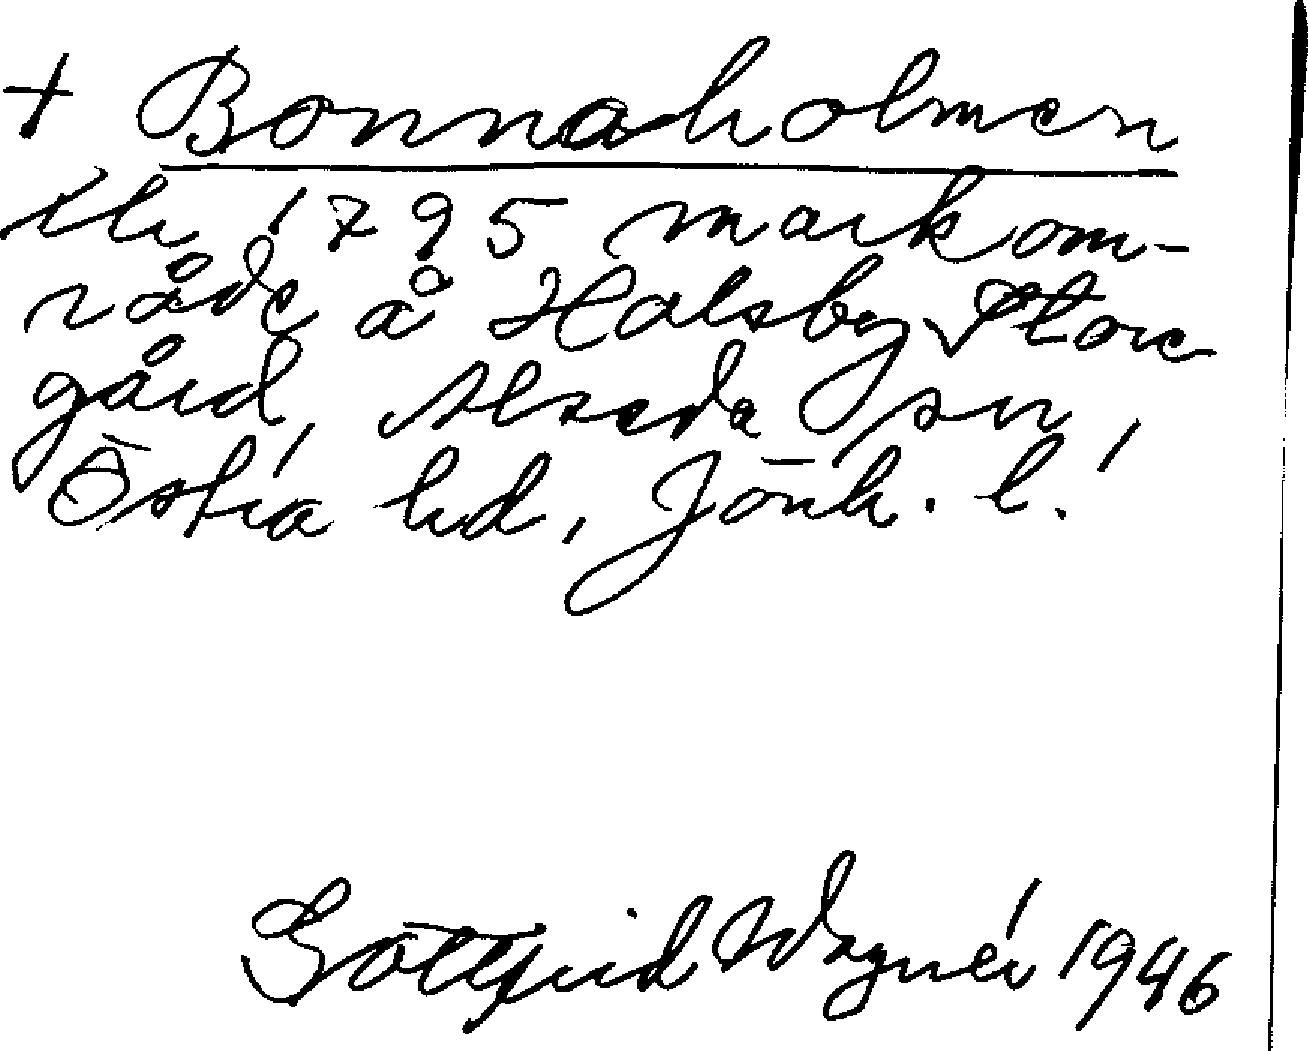 + Bonnaholmen
Uh 1795 markom-
råde å Holsby Stor
gård, Alseda sn,
Östra hd, Jönk. l.
Gottfrid Wagnér 1946